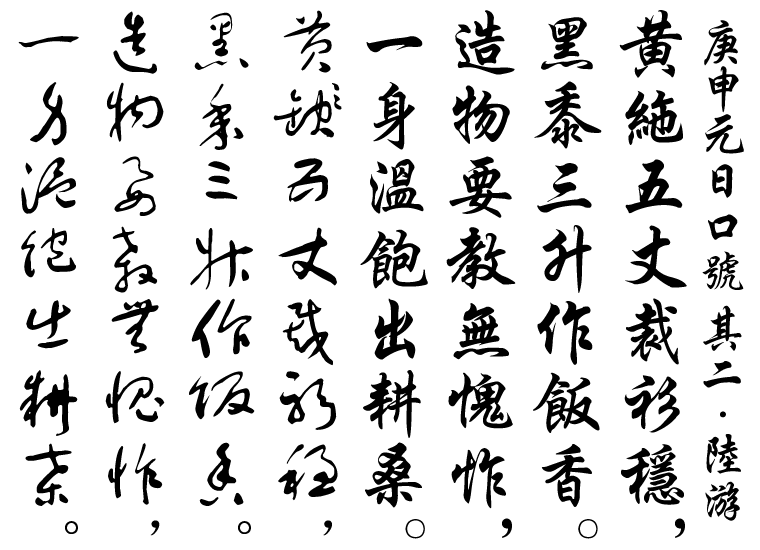 庚申元日口號其二·陸游
黃絁五丈裁衫穩，
黑黍三升作飯香。
造物要教無愧怍，
一身溫飽出耕桑。
黃絁五丈裁衫穩，
黑黍三升作飯香。
造物要教無愧怍，
一身溫飽出耕桑。